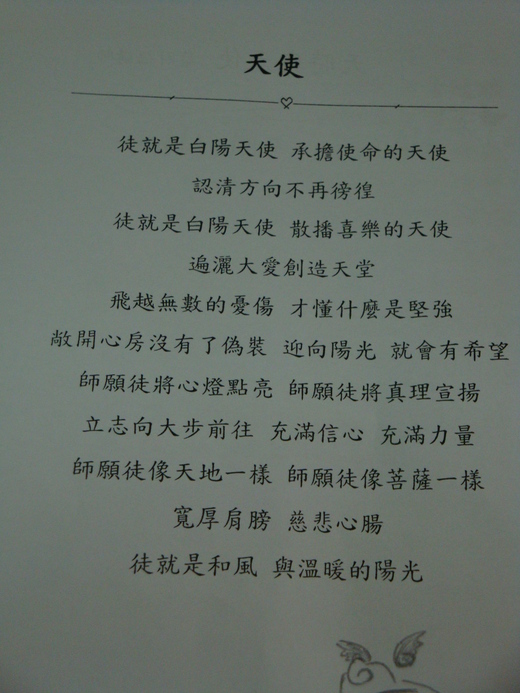 天使
徒就是白陽天使 承擔使命的天使
認清方向不再徬徨
徒就是白陽天使 散播喜樂的天使
遍灑大愛創造天堂
飛越無數的憂傷 才懂什麼是堅強
敞開心房沒有了偽裝 迎向陽光 就會有希望
師願徒將心燈點亮 師願徒將真理宣揚
立志向大步前往 充滿信心 充滿力量
師願徒像天地一樣 師願徒像菩薩一樣
寬厚肩膀 慈悲心腸
徒就是和風 與溫暖的陽光